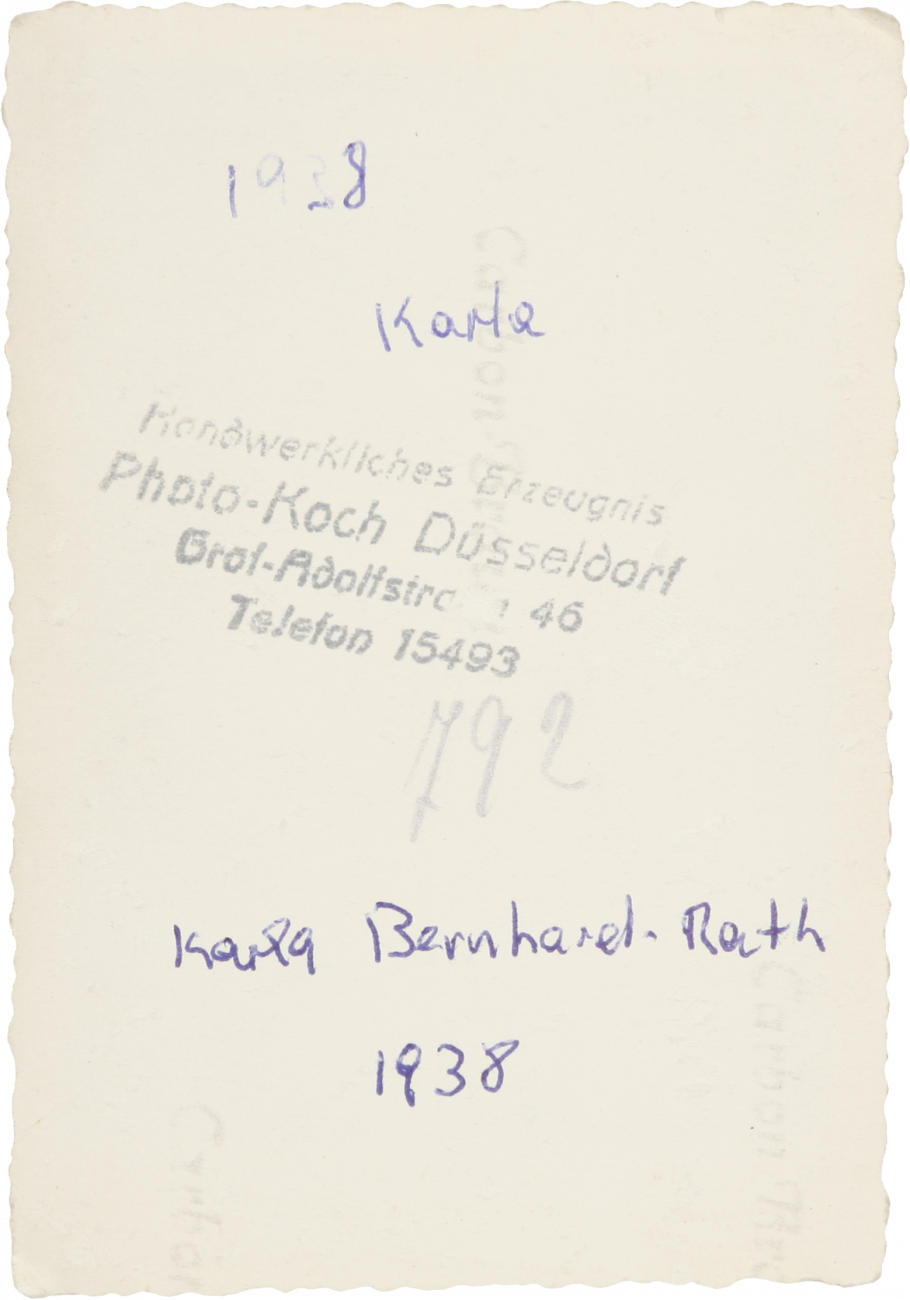 1938
Karla
Handwerkliches Erzeugnis
Photo-Koch Düsseldorf
Graf-Adolfstra 46
Telefon 15493
792
Karla Bernhard-Rath
1938